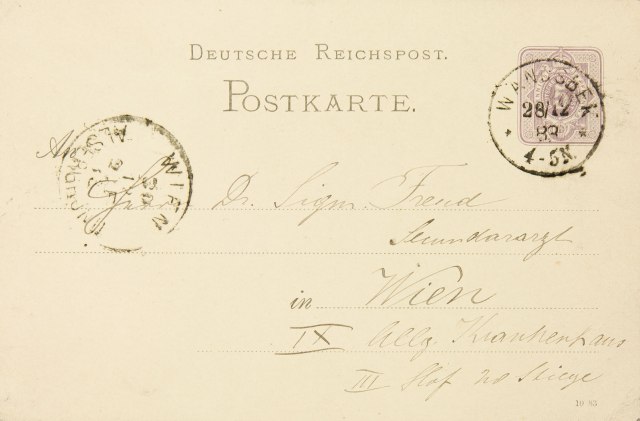 DEUTSCHE REICHSPOST.
POSTKARTE.
WANDSBEK
28/12
83
4-5N.
WIEN
An
Herrn Dr. Sigm. Freud
Secundararzt
in Wien
IX Allg. Krankenhaus
III Hof Stiege
10 83